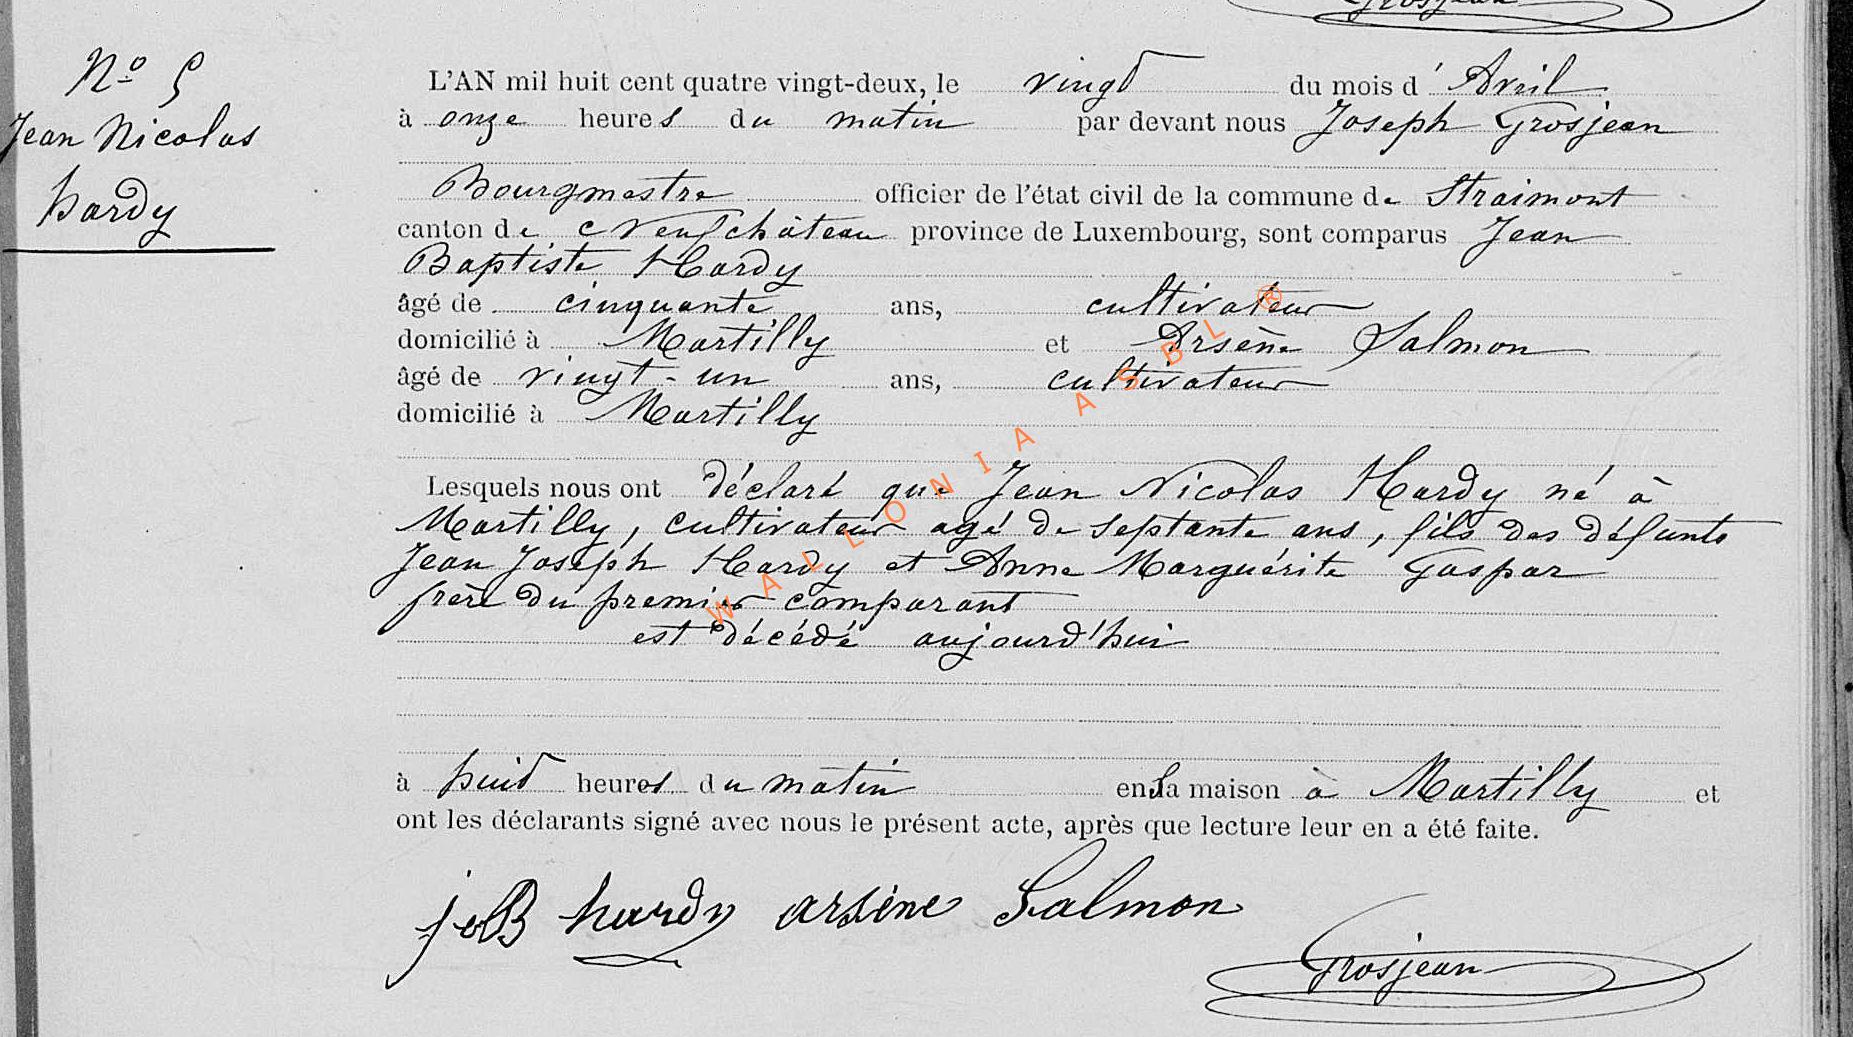 Grosjean
Nº 5
Jean Nicolas
hardy
L'AN mil huit cent quatre vingt-deux, le vingt du mois d' Avril
à onze heures du matin par devant nous Joseph Grosjean
Bourgmestre officier de l'état civil de la commune de Straimont
canton de Neufchâteau province de Luxembourg, sont comparus Jean
Baptiste Hardy
âgé de cinquante ans, cultivateur
domicilié à Martilly et Arsène Salmon
âgé de vingt-un ans, cultivateur
domicilié à Martilly
Lesquels nous ont déclaré que Jean Nicolas Hardy né à
Martilly, cultivateur agé de septante ans, fils des défunts
Jean Joseph Hardy et Anne Marguérite Gaspar
frère du premier comparant
est décédé aujourd'hui
à huit heures du matin en sa maison à Martilly et
ont les déclarants signé avec nous le présent acte, après que lecture leur en a été faite.
j b hardy arsène Salmon
Grosjean
WALLONIA ASBL ®